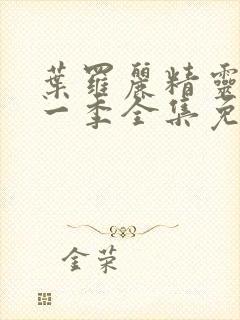 葉羅麗精靈
一季全集免
金荣